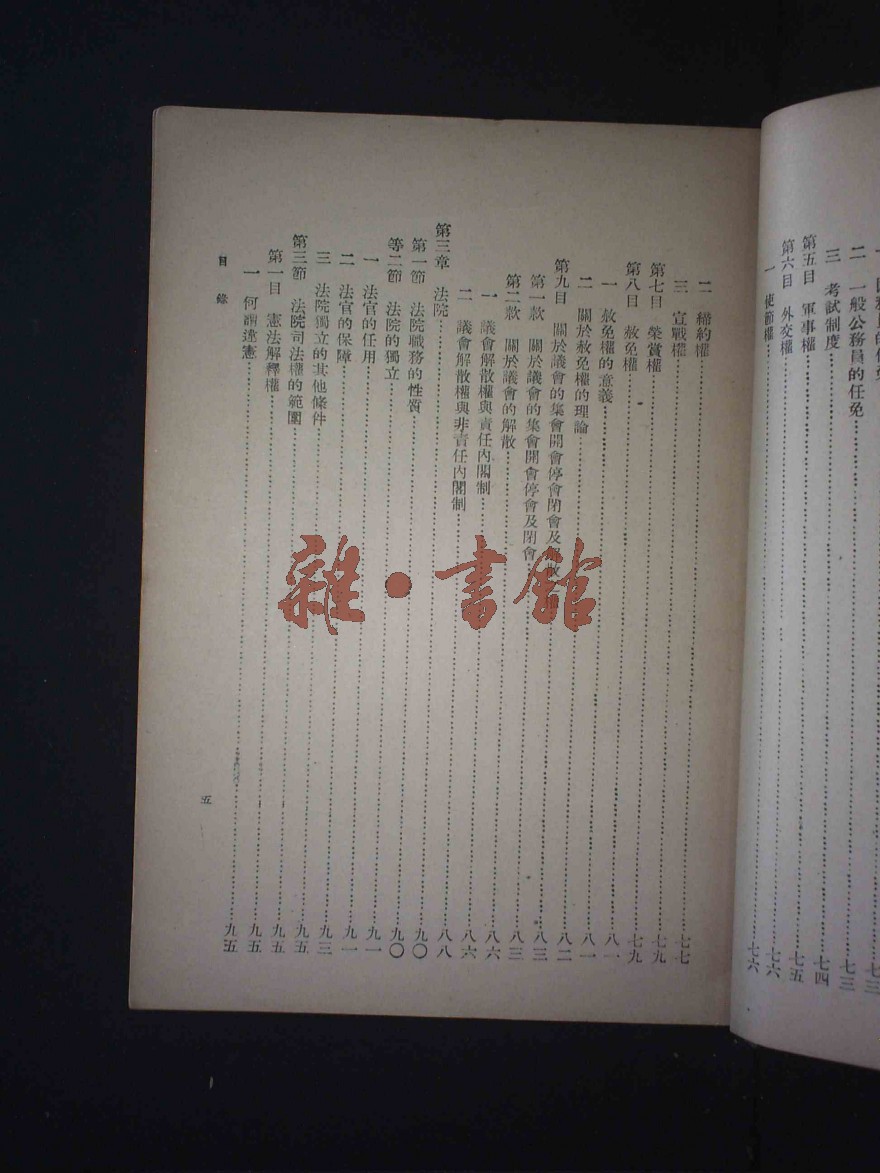 二 一般公務員的任免……七三
三 考試制度……七四
第五目 軍事權……七五
第六目 外交權……七六
一 使節權……七六
二 締約權……七七
三 宣戰權……七九
第七目 榮賞權……七九
第八目 赦免權……八一
一 赦免權的意義……八一
二 關於赦免權的理論……八二
第九目 關於議會的集會開會停會閉會及解散權……八三
第一款 關於議會的集會開會停會及閉會……八三
第二款 關於議會的解散……八六
一 議會解散權與責任內閣制……八六
二 議會解散權與非責任內閣制……八八
第三章 法院……九〇
第一節 法院職務的性質……九〇
等二節 法院的獨立……九一
一 法官的任用……九一
二 法官的保障……九三
三 法院獨立的其他條件……九五
第三節 法院司法權的範圍……九五
第一目 憲法解釋權……九五
一 何謂違憲……九五
目錄
五
雜·書館